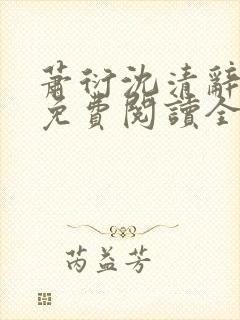 蕭衍沈清辭
免費閱讀全
芮益芳